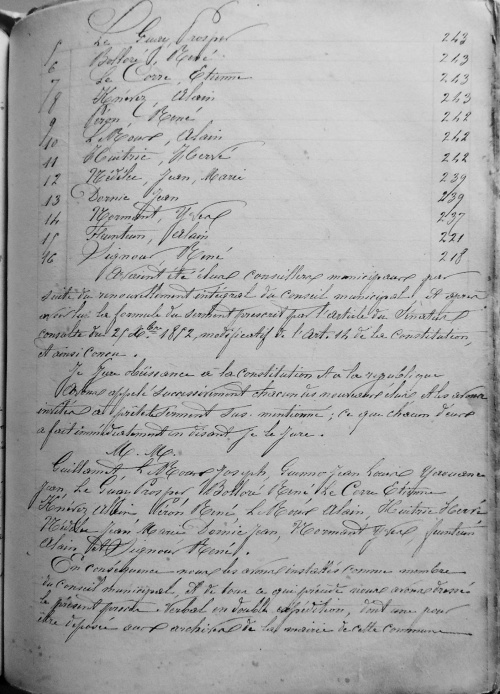 5 Le Guar Prosper 243
6 Bolloré, René 243
7 Le Corre, Etienne 243
8 Hénévez Alain 243
9 Piron, René 242
10 Le Roux, Alain 242
11 Huitric, Hervé 242
12 Nédélec, Jean, Marie 239
13 Dornic Jean 239
14 Normant, Yves 237
15 Funteun, Alain 221
16 Signour René 218
ayant été élus conseillers municipaux par
suite du renouvellement intégral du conseil municipal, et après
avoir lu la formule du serment prescrit par l'article du Sénatus
consulte du 25 Xbre 1852, modificatif de l'Art. 14 de la Constitution,
et ainsi conçu.
Je Jure obéissance à la constitution et à la république
avons appelé successivement chacun des nouveaux élus et les avons
invités à prêter serment sus-mentionné ; ce que chacun d'eux
a fait immédiatement en disant, je le jure.
M. M.
Guillamet Le Roux Joseph Jean Louis
Jean, Le Guar Prosper Bolloré René Le Corre Etienne
Hénévez Alain Piron René Le Roux Alain, Huitric Hervé
Nédélec Jean Marie Dornic Jean, Normant Yves funteun
Alain et Signour René.
En conséquence nous les avons installés comme membre
du conseil municipal, et de tout ce qui précède nous avons dressé
le présent procès-verbal en double expédition, dont une pour
être déposée aux archives de la mairie de cette commune